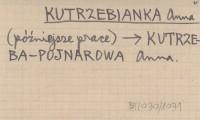 KUTRZEBIANKA Anna
(późniejsze prace) → KUTRZE-
BA-POJNAROWA Anna.